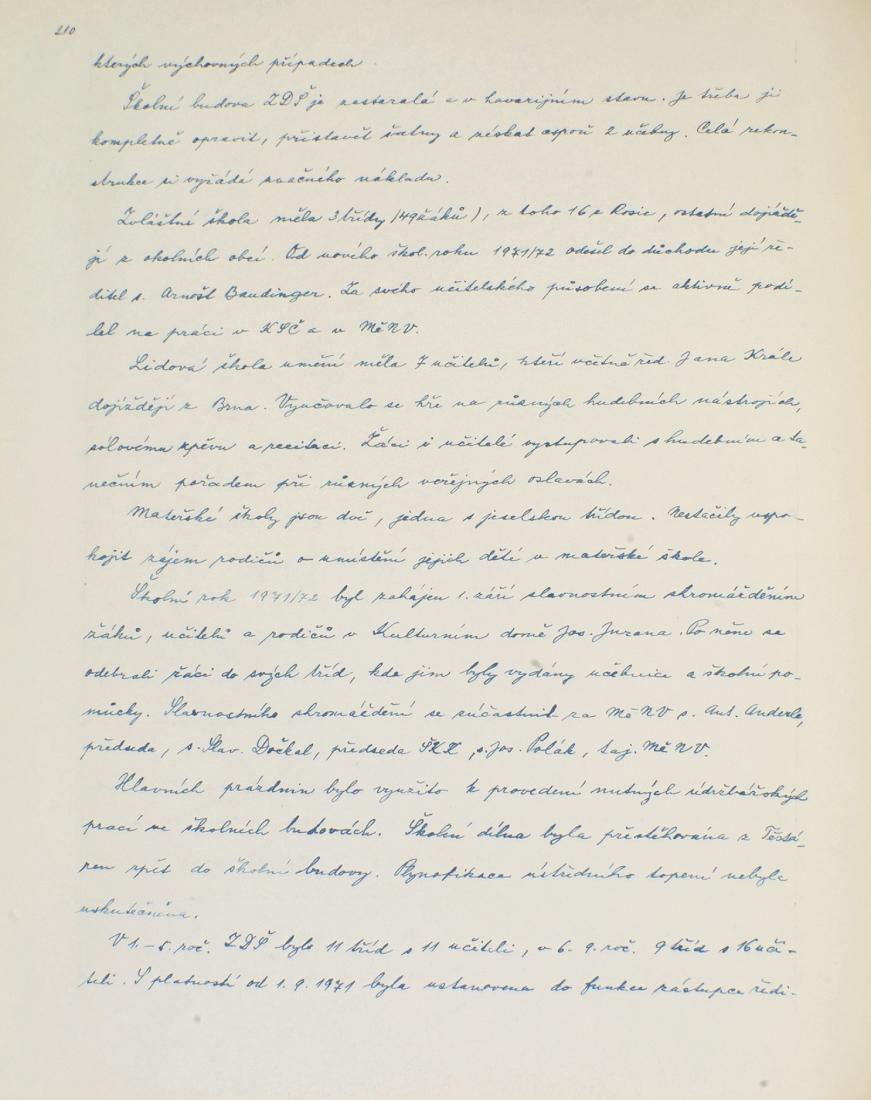 210
kterých výchovných případech.
Školní budova ZDŠ je zastaralá a v havarijním stavu. Je třeba ji
kompletně opravit, přistavět šatny a získat aspoň 2 učebny. Celá rekon-
strukce si vyžádá značného nákladu.
Zvláštní škola měla 3 třídy /49 žáků), z toho 16 z Rosic, ostatní dojíždě-
jí z okolních obcí. Od nového škol. roku 1971/72 odešel do důchodu její ře-
ditel s. Arnošt Baudinger. Za svého učitelského působení se aktivně podí-
lel na práci v KSČ a v MěNV.
Lidová škola umění měla 7 učitelů, kteří včetně řed. Jana Krále
dojíždějí z Brna. Vyučovalo se hře na různých hudebních nástrojích,
sólovému zpěvu a recitaci. Žáci i učitelé vystupovali s hudebním a ta-
nečním pořadem při různých veřejných oslavách.
Mateřské školy jsou dvě, jedna s jeselskou třídou. Nestačily uspo-
kojit zájem rodičů o umístění jejich dětí v mateřské škole.
Školní rok 1971/72 byl zahájen 1. září slavnostním shromážděním
žáků, učitelů a rodičů v Kulturním domě Jos. Jurana. Po něm se
odebrali žáci do svých tříd, kde jim byly vydány učebnice a školní po-
můcky. Slavnostního shromáždění se zúčastnil za MěNV s. Ant. Anderle,
předseda, s. Slav. Dočkal, předseda ŠKK, s. Jos. Polák, taj. MěNV.
Hlavních prázdnin bylo využito k provedení nutných údržbářských
prací ve školních budovách. Školní dílna byla přestěhována z Těsná-
ren zpět do školní budovy. Plynofikace ústředního topení nebyla
uskutečněna.
V 1.-5. roč. ZDŠ bylo 11 tříd s 11 učiteli, v 6.-9. roč. 9 tříd s 16 uči-
teli. S platností od 1. 9. 1971 byla ustanovena do funkce zástupce ředi-